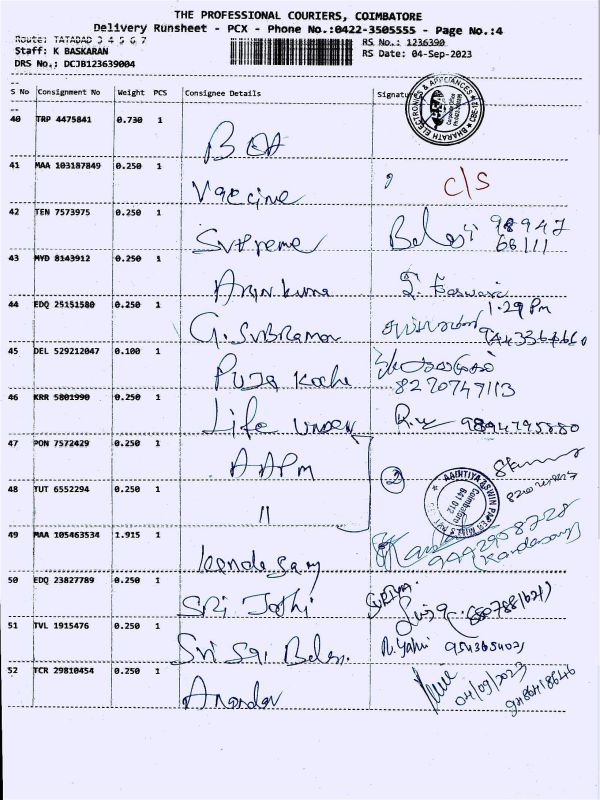 THE PROFESSIONAL COURIERS, COIMBATORE
Delivery Runsheet - PCX - Phone No.:0422-3505555 - Page No.:4
Route: TATABAD 3 4 5 6 7
RS No.: 1236390
Staff: K BASKARAN
RS Date: 04-Sep-2023
DRS No.; DCJB123639004
S No Consignment No Weight PCS Consignee Details Signature
BHARATH ELECTRONICS & APPLIANCES
40 TRP 4475841 0.730 1
41 MAA 103187849 0.250 1 Vaccine C/S
42 TEN 7573975 0.250 1 Supreme 98947
66111
43 MYD 8143912 0.250 1 Arjun kuma
44 EDQ 25151580 0.250 1 G. Subraman 1.29 Pm
45 DEL 529212047 0.100 1 Puja Kochi
8270747113
46 KRR 5801990 0.250 1 Life 9894795880
47 PON 7572429 0.250 1 AAPM 2
48 TUT 6552294 0.250 1 "
Coimbatore
641 012
49 MAA 105463534 1.915 1 9442958228
Kandasamy
50 EDQ 23827789 0.250 1 Sri Jothi SURIYA
51 TVL 1915476 0.250 1 Sri Sai Balaji
52 TCR 29810454 0.250 1 Anandan
04/09/2023
9486418646